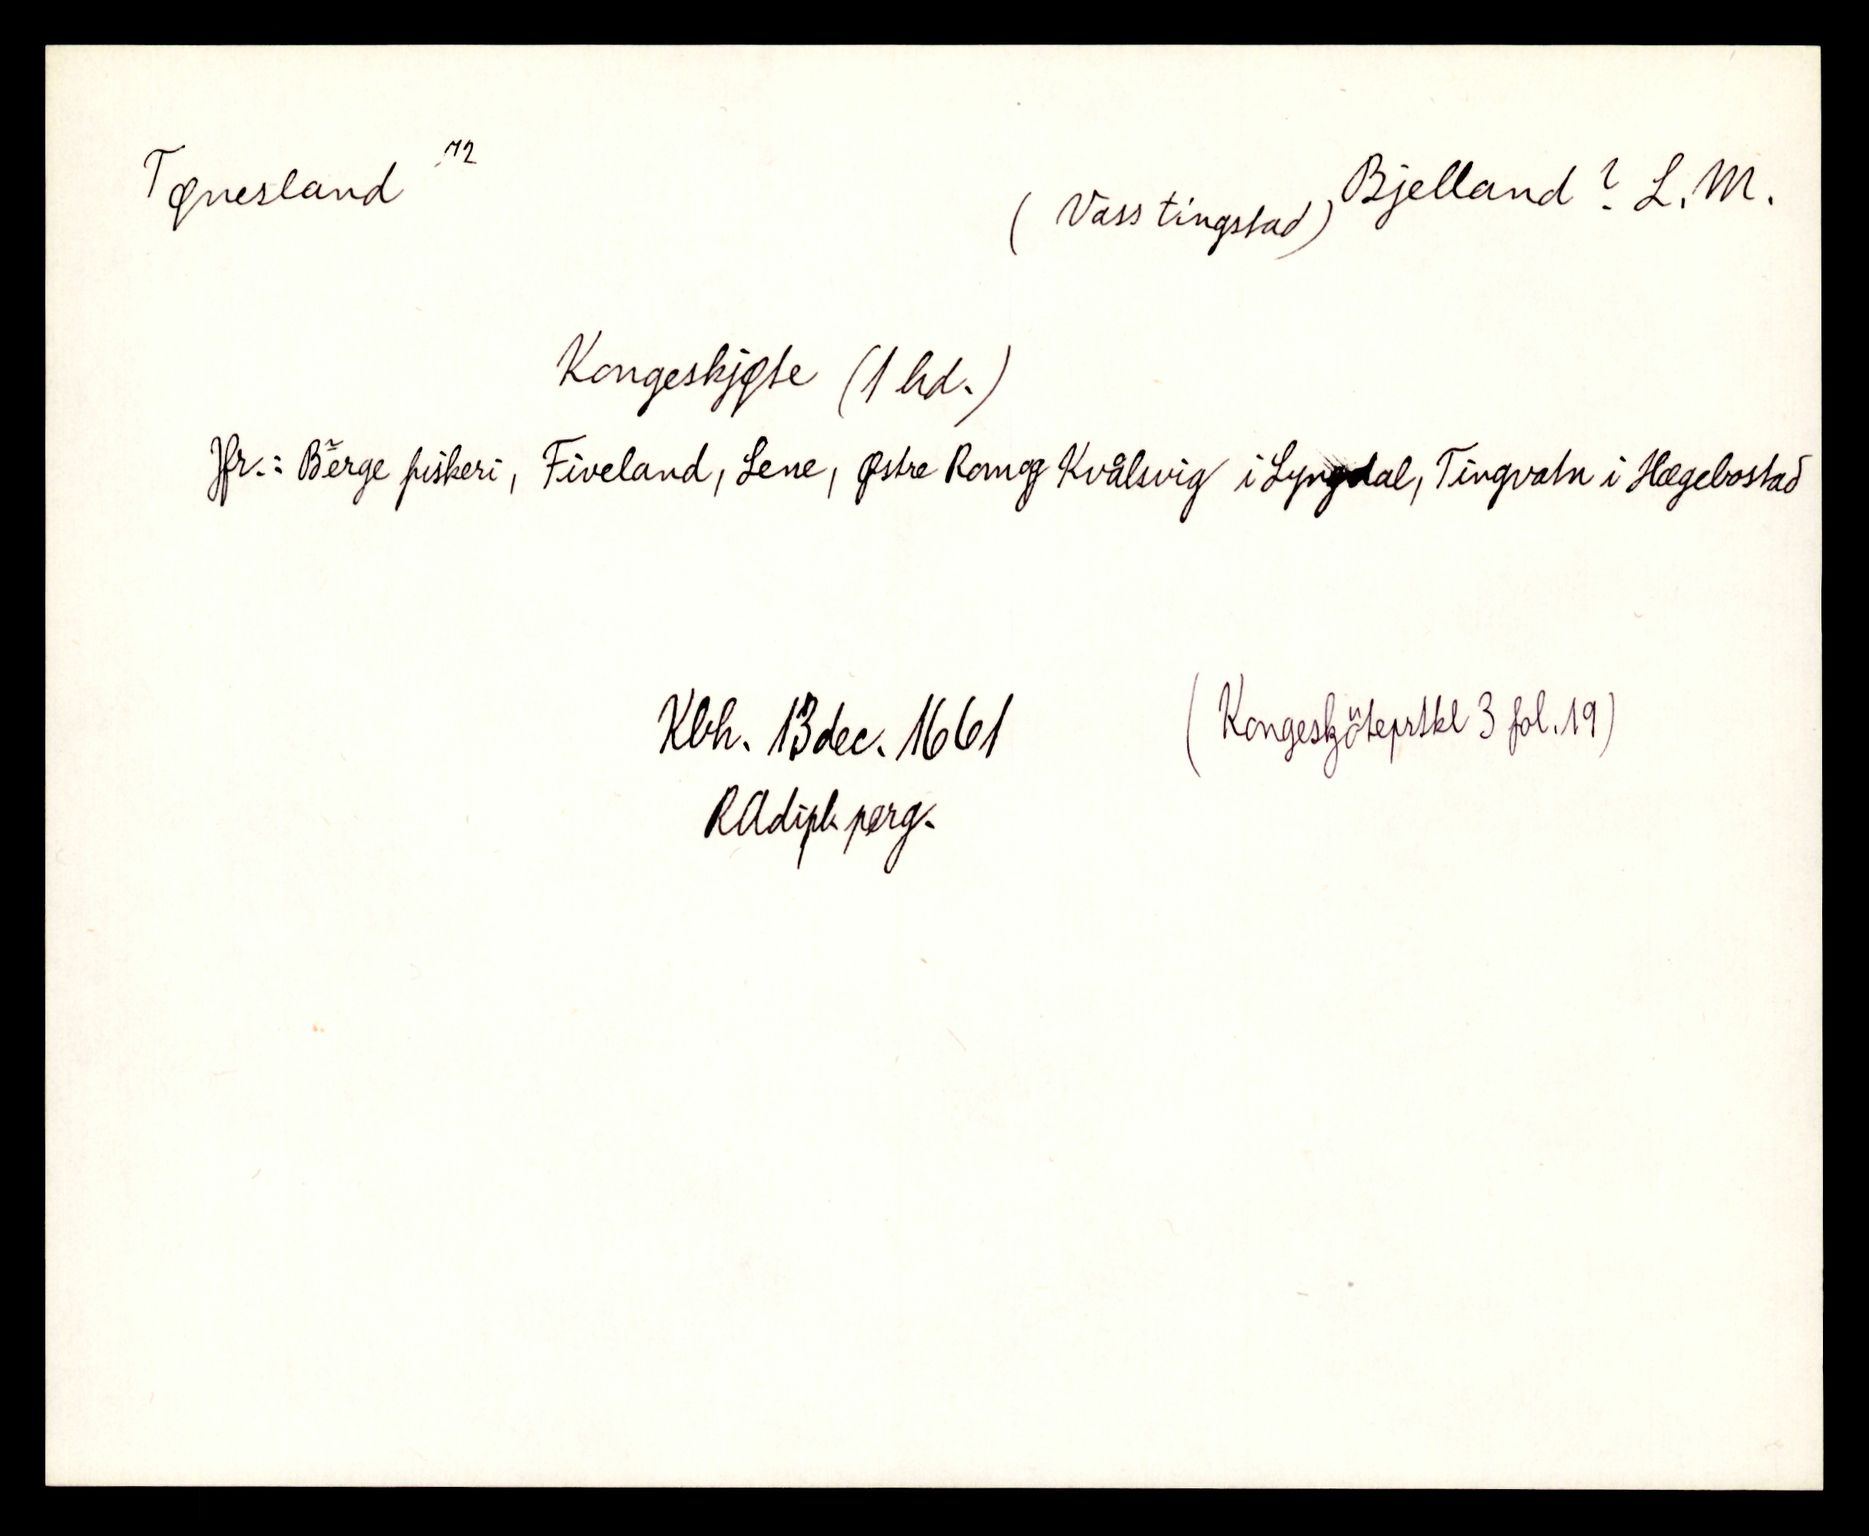 Tønesland 72
(Vass tingstad) Bjelland ? L. M.
Kongeskjøte (1 hd.)
Jfr.: Berge fiskeri, Fiveland, Lene, Østre Rom og Kvålsvig i Lyngdal, Tingvatn i Hægebostad
Kbh. 13 dec. 1661 (Kongeskjöteprtkl 3 fol. 19)
RAdipl. perg.